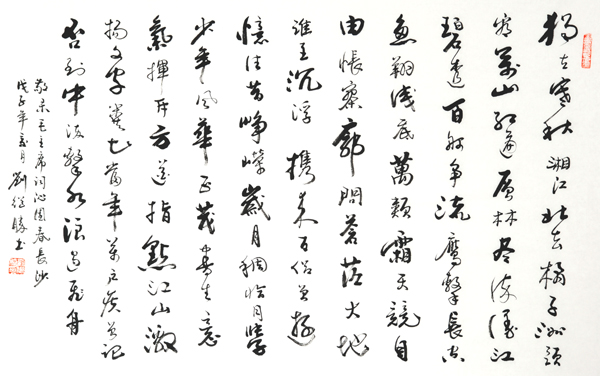 独立寒秋湘江北去橘子洲頭
看萬山红遍层林尽染漫江
碧透百舸争流鷹擊長空
魚翔浅底萬類霜天競自
由悵寥廓問蒼茫大地
谁主沉浮携来百侣曾遊
憶往昔崢嶸歲月稠恰同學
少年風華正茂書生意
氣揮斥方遒指點江山激
揚文字糞土當年萬户侯曾记
否到中流擊水浪遏飛舟
敬录毛主席词沁园春長沙
戊子年月劉勝书